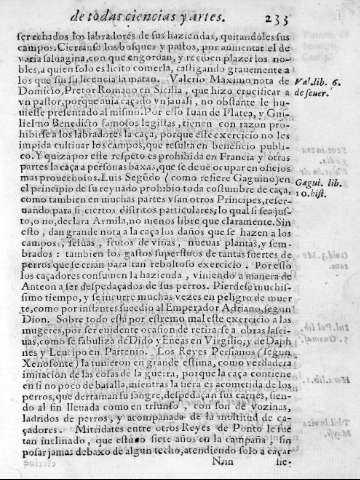 de todas ciencias y artes. 233
ser echados los labradores de sus haziendas, quitandoles sus
campos. Cierranse los bosques y pastos, por aumentar el de
varia saluagina, con que engordan, y recibẽ plazer los no-
bles, a quien solo es licito comerla, castigando grauemente a
los que sin su licencia la matan. Valerio Maximo nota de
Domicio, Pretor Romano en Sicilia, que hizo crucificar a
vn pastor, porque auia caçado vn jauali, no obstante le hu-
uiesse presentado al mismo. Por esso Iuan de Platea, y Gui-
llelmo Benedicto famosos legistas, tienen con razon prohi-
birse a los labradores la caça, porque este exercicio no les
impida cultiuar los campos, que resulta en beneficio publi-
co. Y quiza por este respeto es prohibida en Francia y otras
partes la caça a personas baxas, que se deue ocupar en oficios
mas prouechosos. Luis Segũdo (como refiere Gaguino) en
el principio de su reynado prohibio toda costumbre de caça,
como tambien en muchas partes vsan otros Principes, reser-
uando para si ciertos distritos particulares, lo qual si sea jus-
to, o no, declara Armila, no menos libre que claramente. Sin
esto, dan grande nota a la caça los daños que se hazen a los
campos, seluas, frutos de viñas, nueuas plantas, y sem-
brados: tambien los gastos superfluos de tantas suertes de
perros que se crian para tan reboltoso exercicio. Por esto
los caçadores consumen la hazienda, viniendo a manera de
Anteon a ser despedaçados de sus perros. Pierdese muchis-
simo tiempo, y se incurre muchas vezes en peligro de muer
te, como por infantes sucedio al Emperador Adriano, segun
Dion. Sobre todo está por estremo mal este exercicio a las
mugeres, por ser euidente ocasion de retirarse a obras lasci-
uas, como se fabuliza de Dido y Eneas en Virgilio, y de Daph
nes y Leucipo en Partenio. Los Reyes Persianos (segun
Xenofonte) la tuuieron en grande estima, como verdadera
imitacion de las cosas de la guerra, porque la caça contiene
en si no poco de batalla, mientras la fiera es acometida de los
perros, que derraman su sangre, despedaçan sus carnes, sien-
do al fin lleuada como en triunfo, con son de vozinas,
ladridos de perros, y acompañada de la multitud de ca-
çadores. Mitridates entre otros Reyes de Ponto le fue
tan inclinado, que estuuo siete años en la campaña, sin
posar jamas debaxo de algun techo, atendiendo solo a caçar
Nnn sie-
Val. lib. 6.
de seuer.
Gagui. lib.
10. hist.